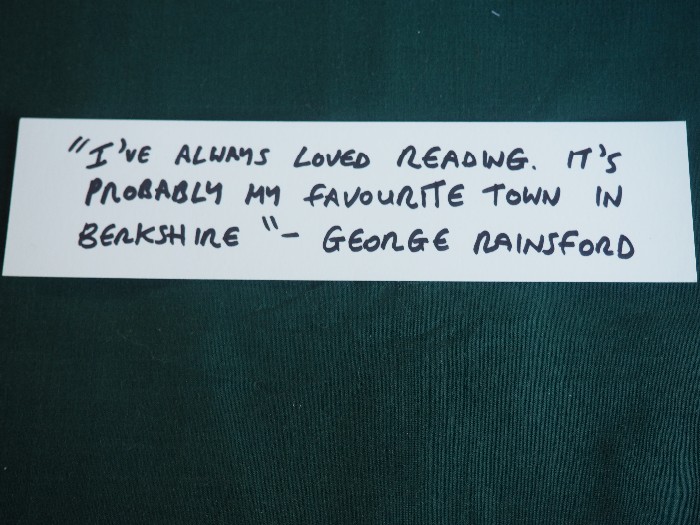 "I'VE ALWAYS LOVED READING. IT'S
PROBABLY MY FAVOURITE TOWN IN
BERKSHIRE" - GEORGE RAINSFORD